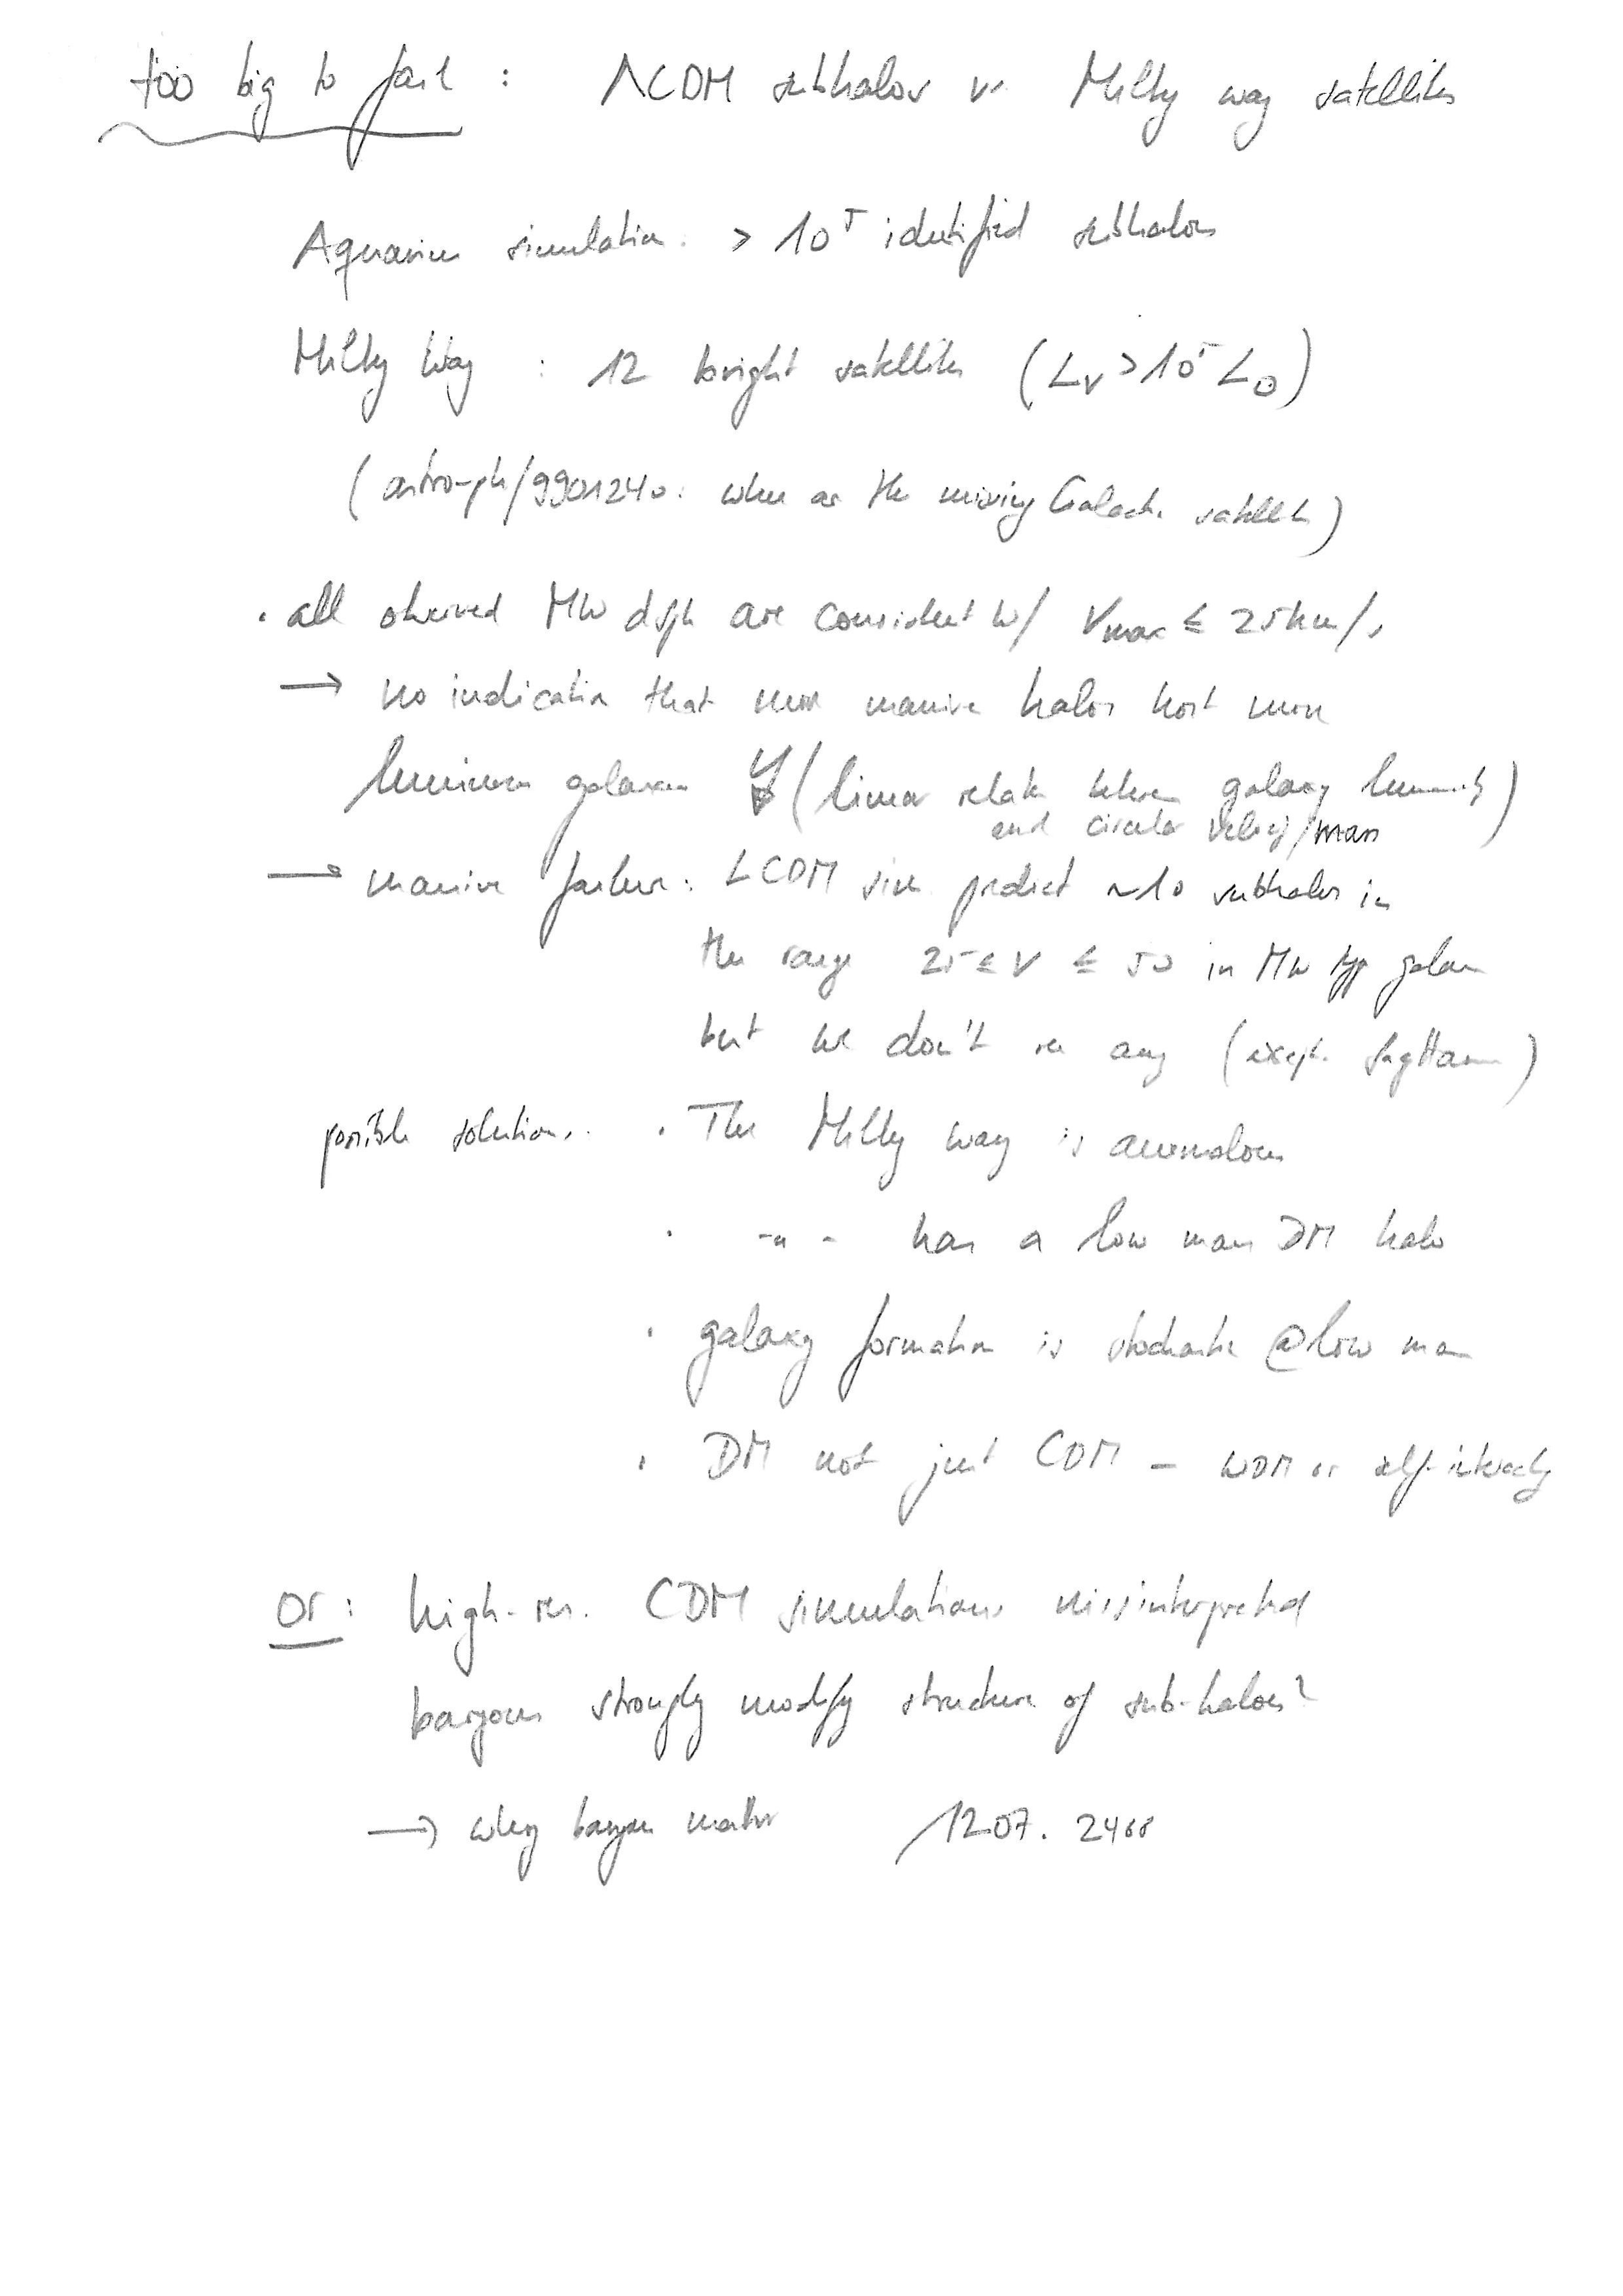 too big to fail : ΛCDM subhalos vs Milky way satellites
Aquarius simulation : > 10⁵ identified subhalos
Milky Way : 12 bright satellites (L_V > 10⁵ L_⊙)
(astro-ph/9901240: where are the missing Galactic satellites)
· all observed MW dSph are consistent w/ V_max ≤ 25 km/s
→ no indication that more massive halos host more
luminous galaxies (linear relation between galaxy luminosity)
and circular velocity/mass
→ massive failure: LCDM sim predict ~10 subhalos in
the range 25 ≤ V ≤ 50 in MW typ galaxy
but we don't see any (except Sagittarius)
possible solutions: · The Milky way is anomalous
· - " - has a low mass DM halo
· galaxy formation is stochastic @ low mass
· DM not just CDM – WDM or self-interacting
or: high-res. CDM simulations missinterpreted
baryons strongly modify structure of sub-haloes?
→ why baryons matter 1207.2468